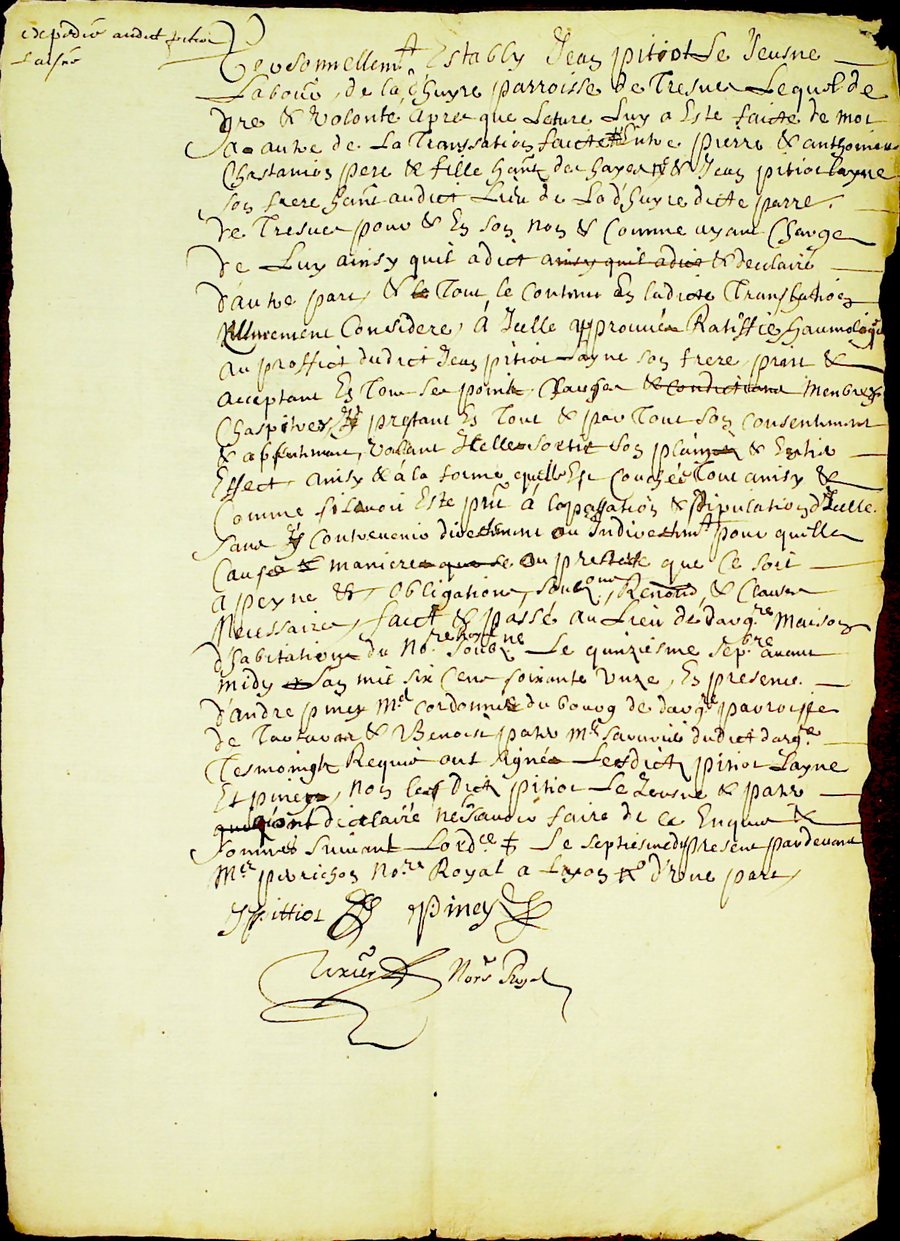 expedié audict pitiot
Laisné
Personnellemt Estably Jean pitiot Le Jeusne
Labour de la dhuyre parroisse de Tresves Lequel de
gre & volonté apres que Lecture Luy a Este faicte de mot
a autre de La Transsation faicte Entre pierre & anthoinie
Chastanion pere & fille hant des hayes & Jean pitiot layne
son frere hant audict Lieu de La dhuyre dicte parre
de Tresves pour & En son non & Comme ayant Charge
de Luy ainsy quil a dict ainsy quil a dict & declairé
d'autre part & le Tout le contenu En ladicte Transsation
Meurement Considere, A Icelle approuvée Ratiffie haumologué
au proffict dudict Jean pitiot Layne son frere, prnt &
acceptant En Tous ses points Charges & condictions menbres
Chaspitres prestant En Tout & par Tout son consentement
& assentiment, voulant Icelle sortir son plain & Entier
Effect ainsy & a la forme quelle Est Couchée Tout ainsy &
Comme sil avoit Este prnt à la passation & stipulation d'Icelle
sans y contrevenir directement ou Indirectemt pour quelle
Cause & maniere que se ou pretexte que Ce soit
A peyne & obligations, soubzons, Renons, & Clauses
Necessaires, faict & passé au Lieu de dargre maison
d'habitation du Nore Royal soubzne Le quinziesme Sepbre avant
midy Lan mil six cens soixante Unze, En presence
d'andre piney Me Cordonnier du bourg de dargre parroisse
de Tartaras & Benoist patrr Me savatie dudict dargre
Tesmoingts Requis ont signés Lesdicts pitiot Layne
Et piney, non lesdicts pitiot Le Jeusne & patrr
qui ont declairé ne scavoir faire de ce Enquis &
sommés suivant Lordce Le septiesme du present par devant
Mre perrichon Nore Royal a Lyon d'une part
J Pittiot Piney
Nore Royal